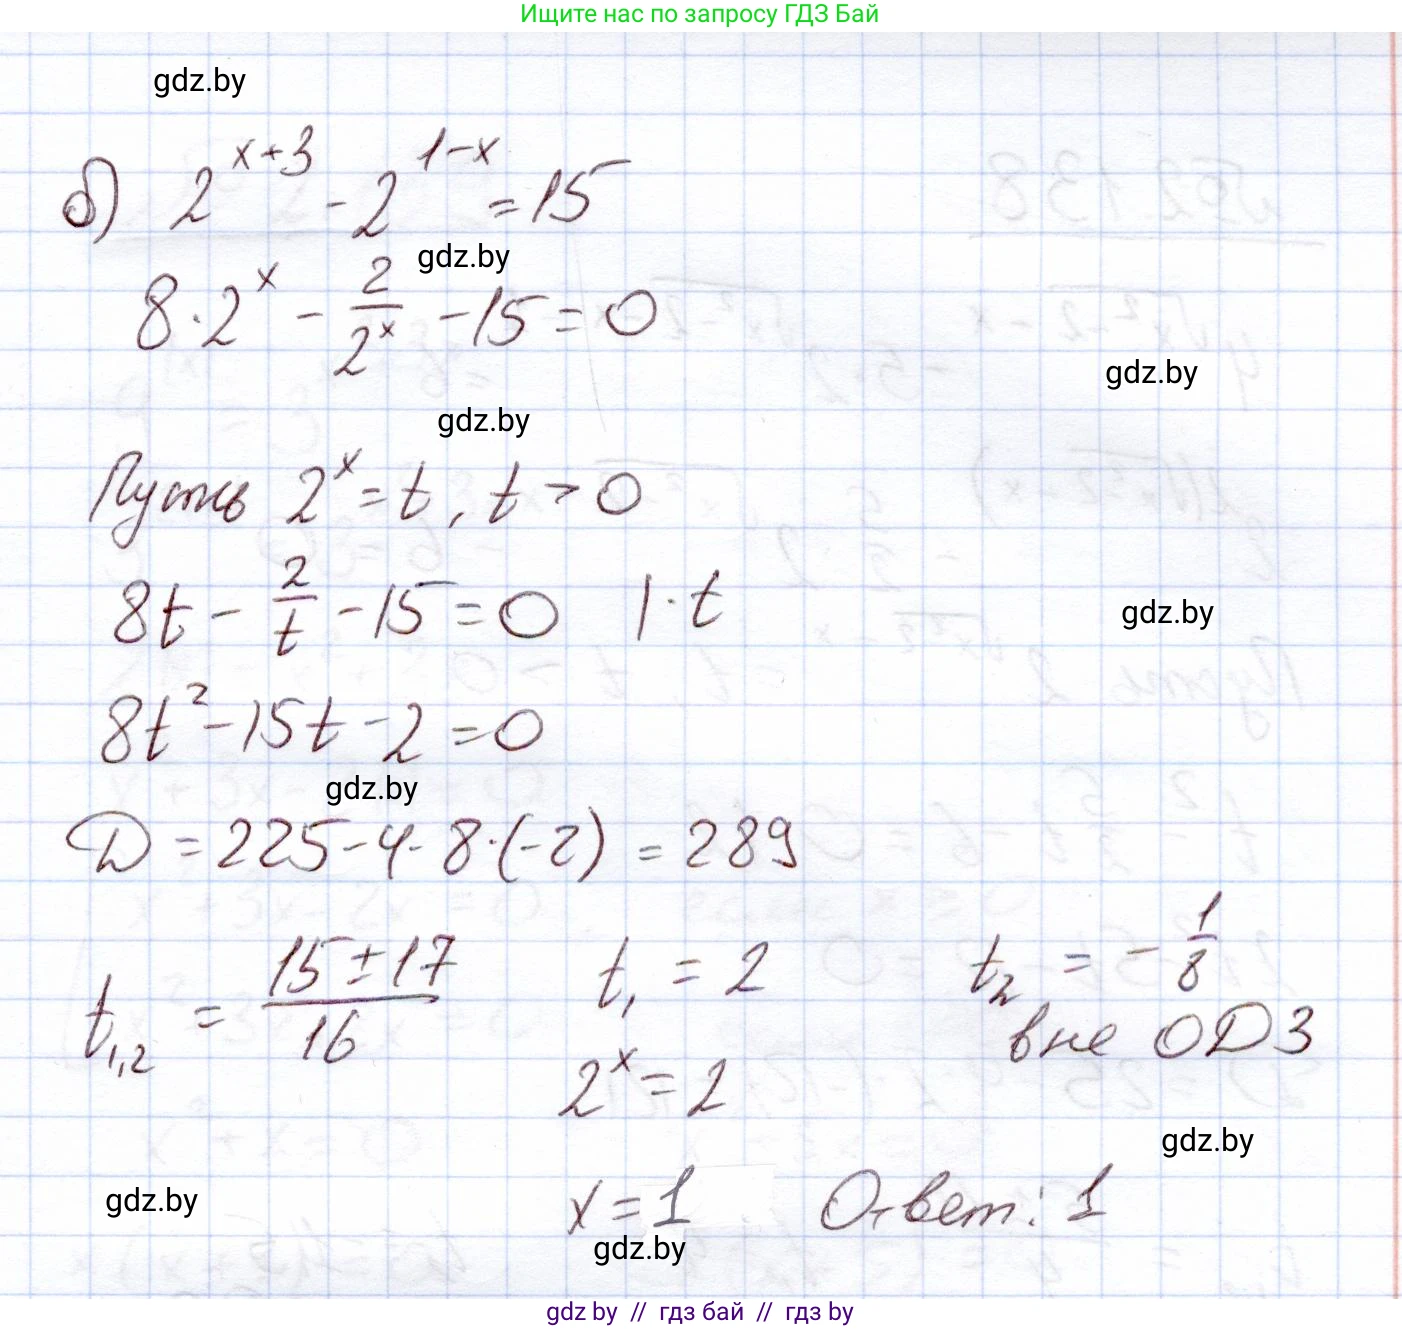 Ищите нас по запросу ГДЗ Бай
gdz.by
б) 2^(x+3) - 2^(1-x) = 15
gdz.by
8·2^x - 2/2^x - 15 = 0
gdz.by
gdz.by
Пусть 2^x = t, t > 0
8t - 2/t - 15 = 0 | · t
gdz.by
8t² - 15t - 2 = 0
gdz.by
D = 225 - 4·8·(-2) = 289
t₁,₂ = (15 ± 17)/16 t₁ = 2 t₂ = -1/8
вне ОДЗ
2^x = 2
gdz.by
gdz.by
x = 1 Ответ: 1
gdz.by
gdz by // гдз бай // гдз by